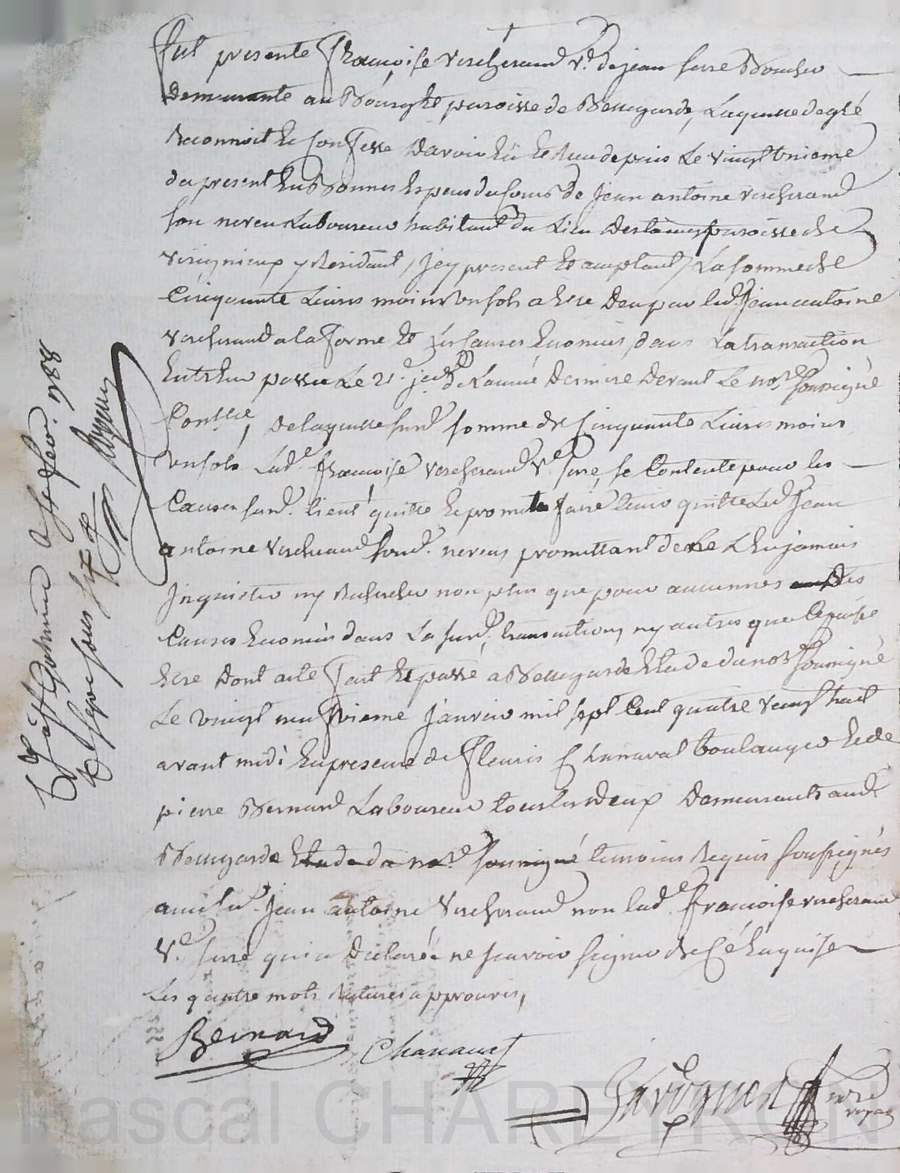 Fut presente Françoise Vercherand v.e de jean serre Boucher
Demeurante au Bourg et paroisse de Bellegarde, Laquelle de gré
Reconnoit et Confesse Davoir Eu et Recu depuis Le vingt unieme
du present En Bonnes Especes du Cours de Jean antoine vercherand
son neveu Laboureur habitant du Lieu Des paroisse de
virignieux y Residant, Icy present et acceptant, La somme de
Cinquante Livres moins un sols a Elle Deue par led. Jean antoine
vercherand a la forme et pour les Causes Enoncés dans La transaction
Entr'Eux passée Le 21. Lannée Derniere Devant Le no.re soussigné
Con.llée, De laquelle sus.d somme de Cinquante Livres moins
un sols lad.e françoise vercherand v.e serre, se Contente pour les
Causes susd. lient quitte et promet faire tenir quitte led. Jean
antoine vercherand sond. neveu promettant de ne L'En jamais
Inquieter ny Rechercher non plus que pour aucunnes des
Causes Enoncés dans La susd. transaction, ny autres que Ce puisse
Etre Dont acte fait et passé a Bellegarde Etude du no.re soussigné
Le vingt neufvieme Janvier mil sept Cent quatre vingt huit
avant midi En presence de fleuris Chanaval boulanger et de
pierre Bernard Laboureur tous les deux Demeurants aud.
Bellegarde Etude du no.re soussigné temoins Requis soussignés
avec led. Jean antoine vercherand non lad.e françoise vercherand
v.e serre qui a Declaré ne savoir signer de Ce Enquise
Les quatre mots Raturés approuvés,
Bernard Chanaval
no.re
royal
fev. 1788
Pascal CHAREYRON